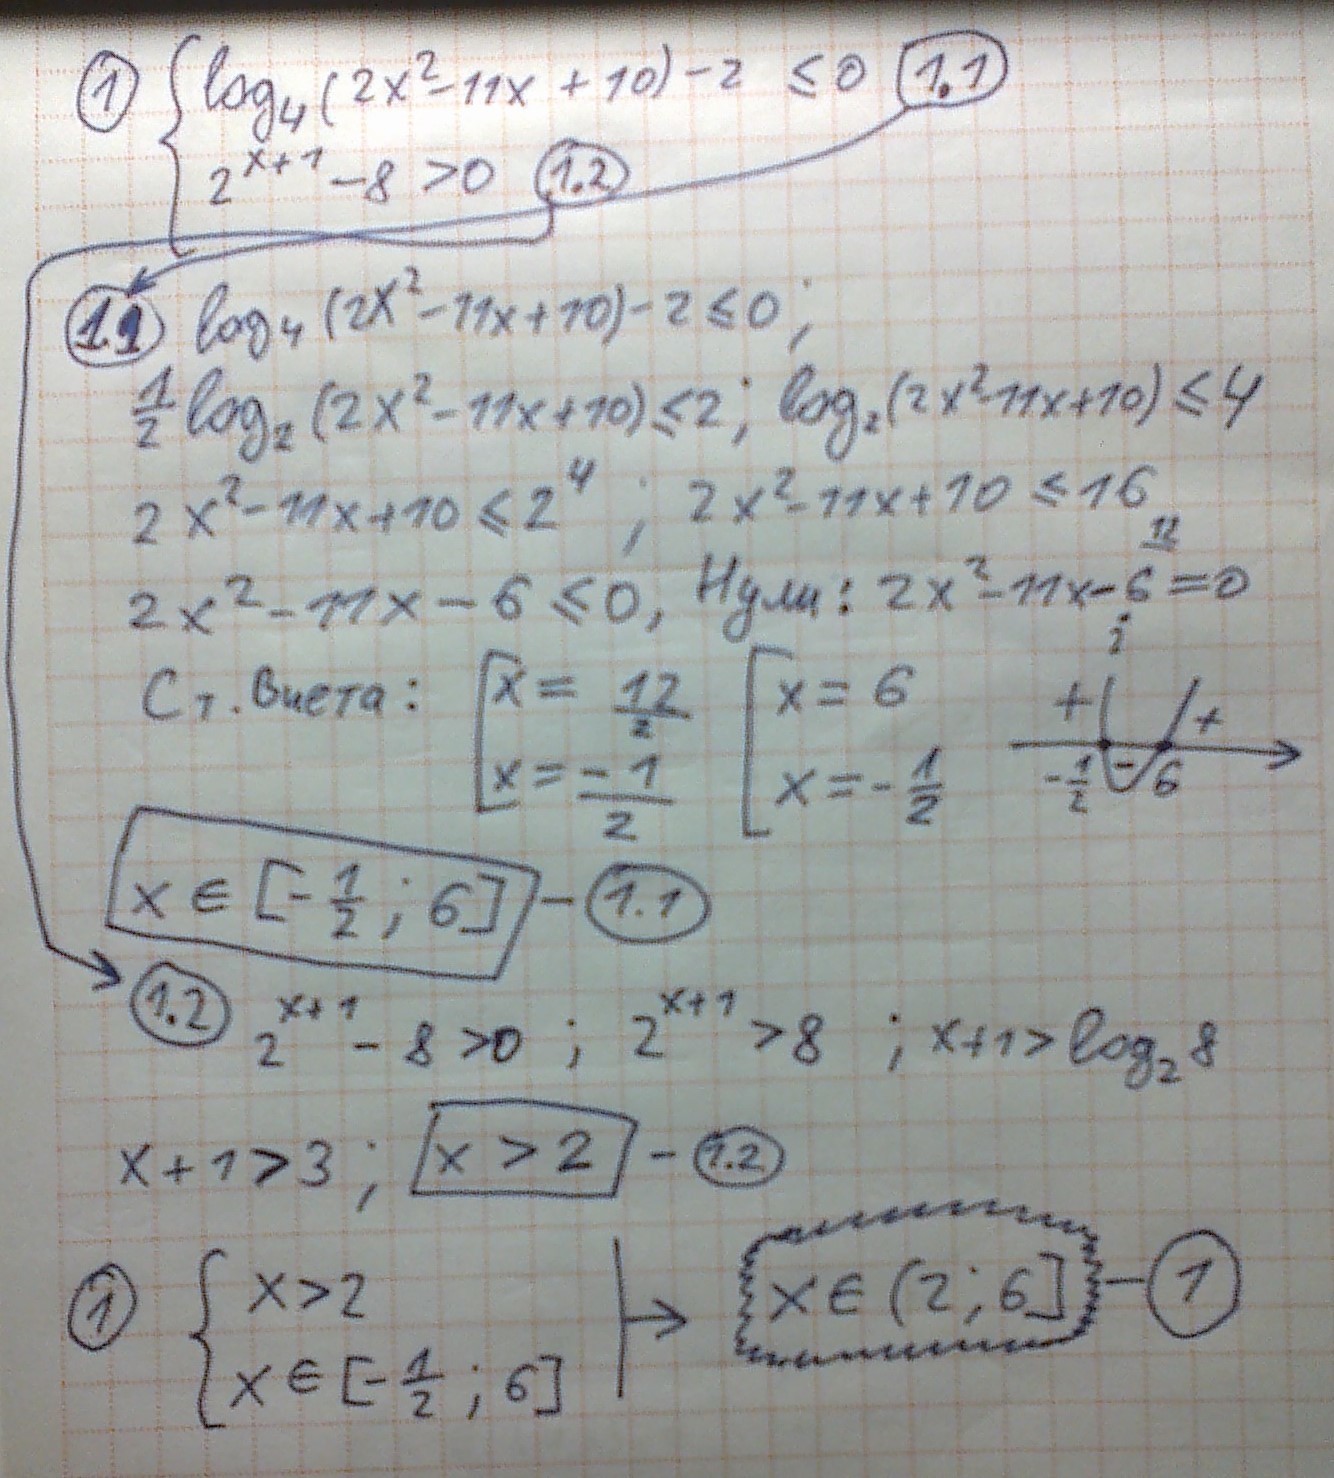 ① { log₄(2x²-11x+10)-2 ≤0 (1.1)
2^(x+1) -8 >0 (1.2)
(1.1) log₄(2x²-11x+10)-2≤0;
1/2 log₂(2x²-11x+10)≤2; log₂(2x²-11x+10)≤4
2x²-11x+10≤2⁴; 2x²-11x+10≤16
2x²-11x-6≤0, Нули: 2x²-11x-6=0
Ст. Виета: [ x=12/2 [ x=6 + +
x=-1/2 x=-1/2 -1/2 - 6
x∈[-1/2;6] - (1.1)
(1.2) 2^(x+1) -8>0; 2^(x+1)>8; x+1>log₂8
x+1>3; x>2 - (1.2)
① { x>2 → x∈(2;6] - ①
x∈[-1/2;6]